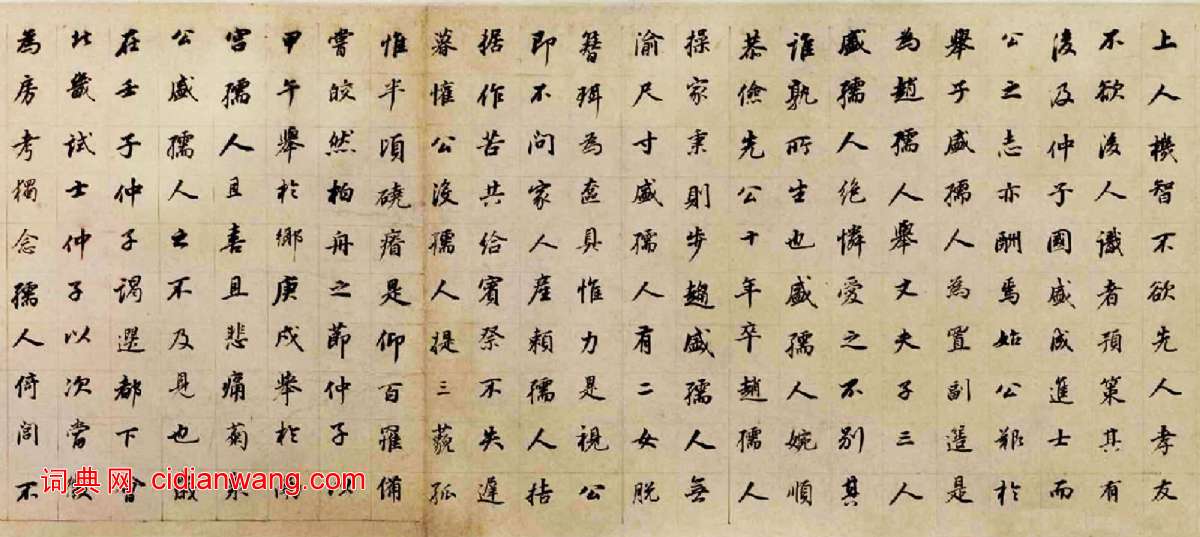 上人機智不欲先人孝友
不欲後人識者預策其有
後及仲子國盛成進士而
公之志亦酬焉始公艱於
舉子盛孺人為置副簉是
為趙孺人舉丈夫子三人
盛孺人絕憐愛之不別其
誰孰所生也盛孺人婉順
恭儉先公十年卒趙孺人
操家秉則步趨盛孺人無
渝尺寸盛孺人有二女脫
簪珥為奩具惟力是視公
即不問家人產賴孺人拮
据作苦共給賓祭不失遲
暮惟公沒孺人提三藐孤
惟半頃磽瘠是仰百罹備
嘗皎然柏舟之節仲子以
甲午舉於鄉庚戌舉於
宮孺人且喜且悲痛菊泉
公盛孺人之不及見也歲
在壬子仲子謁選都下會
北畿試士仲子以次當
為房考獨念孺人倚閭不
词典网 cidianwang.com